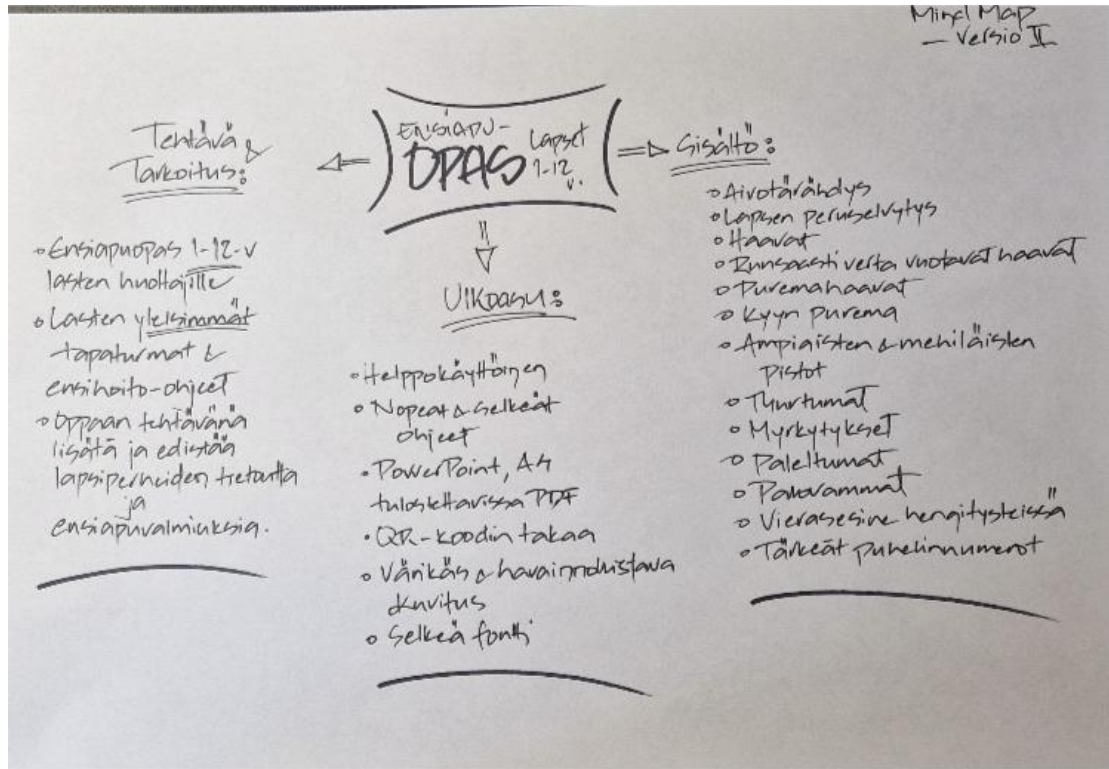 Mind Map
– Versio II
ENSIAPU-
OPAS
Lapset
1-12
v.
Tehtävä &
Tarkoitus:
◦ Ensiapuopas 1-12-v
lasten huoltajille
◦ Lasten yleisimmät
tapaturmat &
ensihoito-ohjeet
◦ Oppaan tehtävänä
lisätä ja edistää
lapsiperheiden tietoutta
ja
ensiapuvalmiuksia.
Ulkoasu:
• Helppokäyttöinen
◦ Nopeat & selkeät
ohjeet
• PowerPoint, A4
tulostettavissa PDF
• QR-koodin takaa
◦ Värikäs & havainnollistava
kuvitus
◦ Selkeä fontti
Sisältö:
◦ Aivotärähdys
◦ Lapsen peruselvytys
◦ Haavat
◦ Runsaasti verta vuotavat haavat
◦ Puremahaavat
◦ Kyyn purema
◦ Ampiaisten & mehiläisten
pistot
◦ Murtumat
◦ Myrkytykset
◦ Paleltumat
◦ Palovammat
◦ Vierasesine hengitysteissä
◦ Tärkeät puhelinnumerot